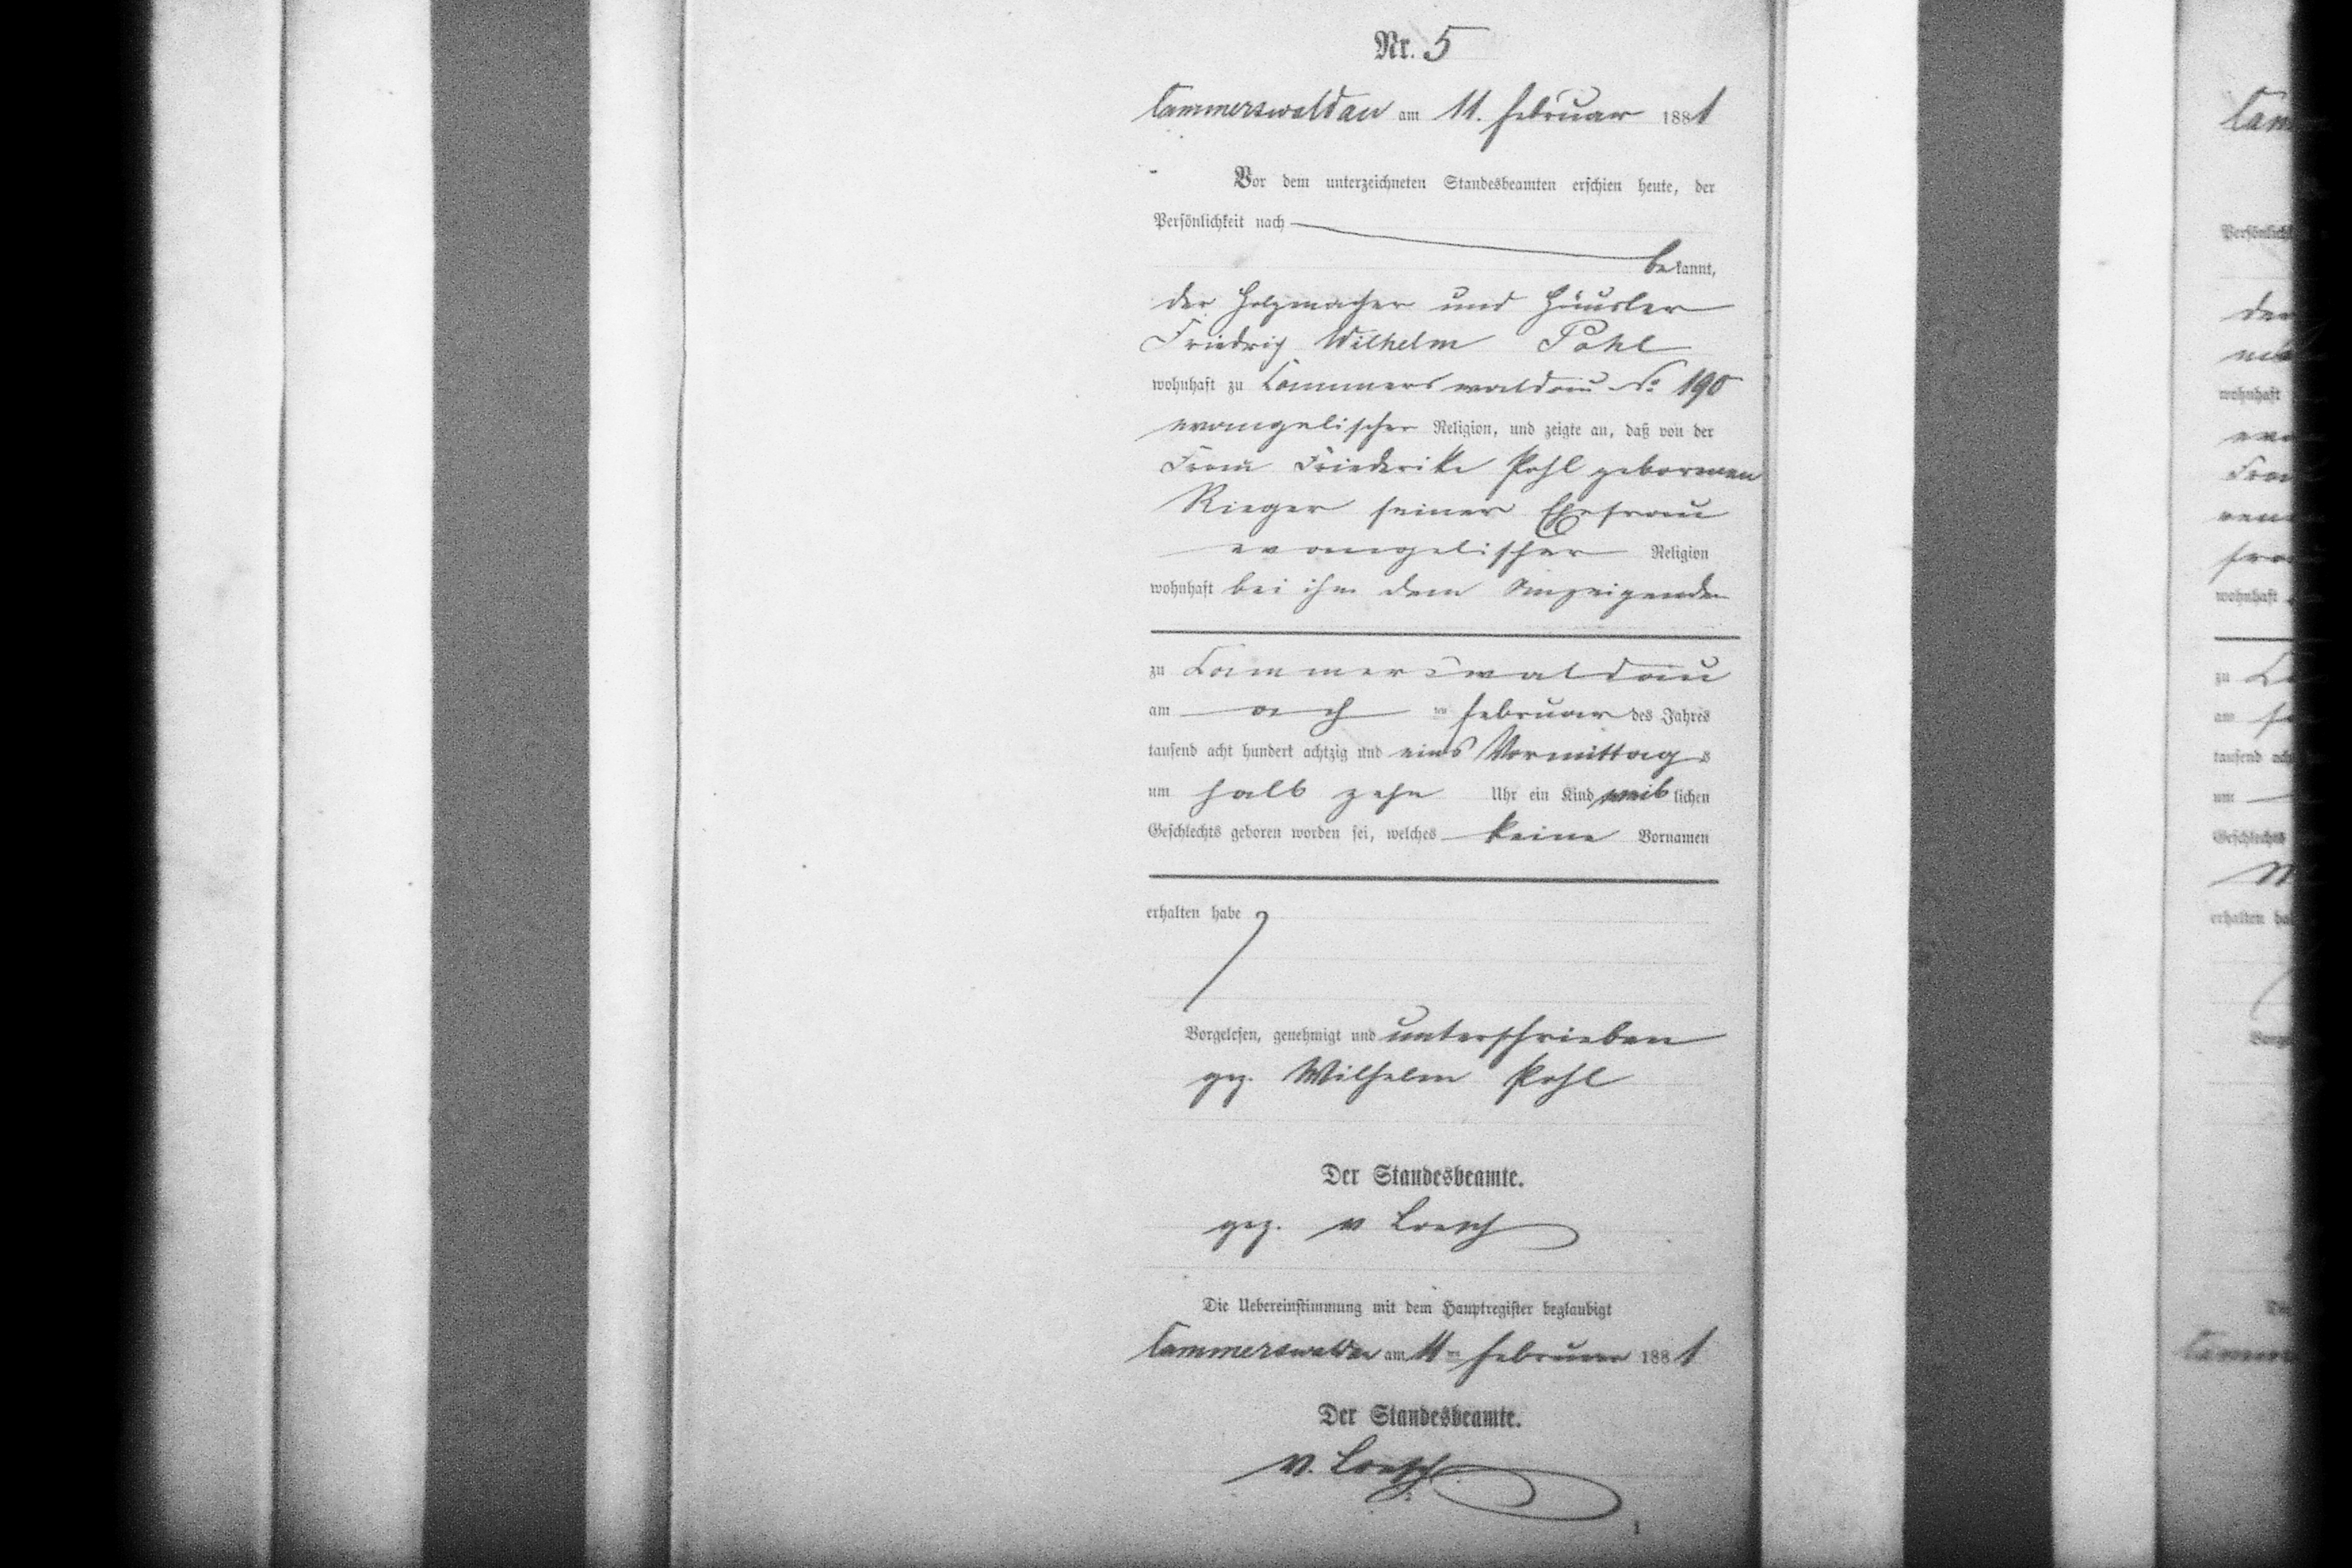 Nr. 5
Cammerswaldau am 11. Februar 1881
Vor dem unterzeichneten Standesbeamten erschien heute, der
Persönlichkeit nach
bekannt,
der Holzmacher und Häusler
Friedrich Wilhelm Pohl
wohnhaft zu Cammerswaldau No 190
evangelischer Religion, und zeigte an, daß von der
Frau Friederike Pohl geborenen
Rieger seiner Ehefrau
evangelischer Religion
wohnhaft bei ihm dem Anzeigenden
zu Cammerswaldau
am ten Februar des Jahres
tausend acht hundert achtzig und eins Vormittags
um halb zehn Uhr ein Kind weiblichen
Geschlechts geboren worden sei, welches keine Vornamen
erhalten habe
Vorgelesen, genehmigt und unterschrieben
gez. Wilhelm Pohl
Der Standesbeamte.
gez. v Loesch
Die Uebereinstimmung mit dem Hauptregister beglaubigt
Cammerswaldau am 11ten Februar 1881
Der Standesbeamte.
v. Loesch
1
Persönlich
wohnhaft
Frau
wohnhaft
zu
am
um
Geschlechts